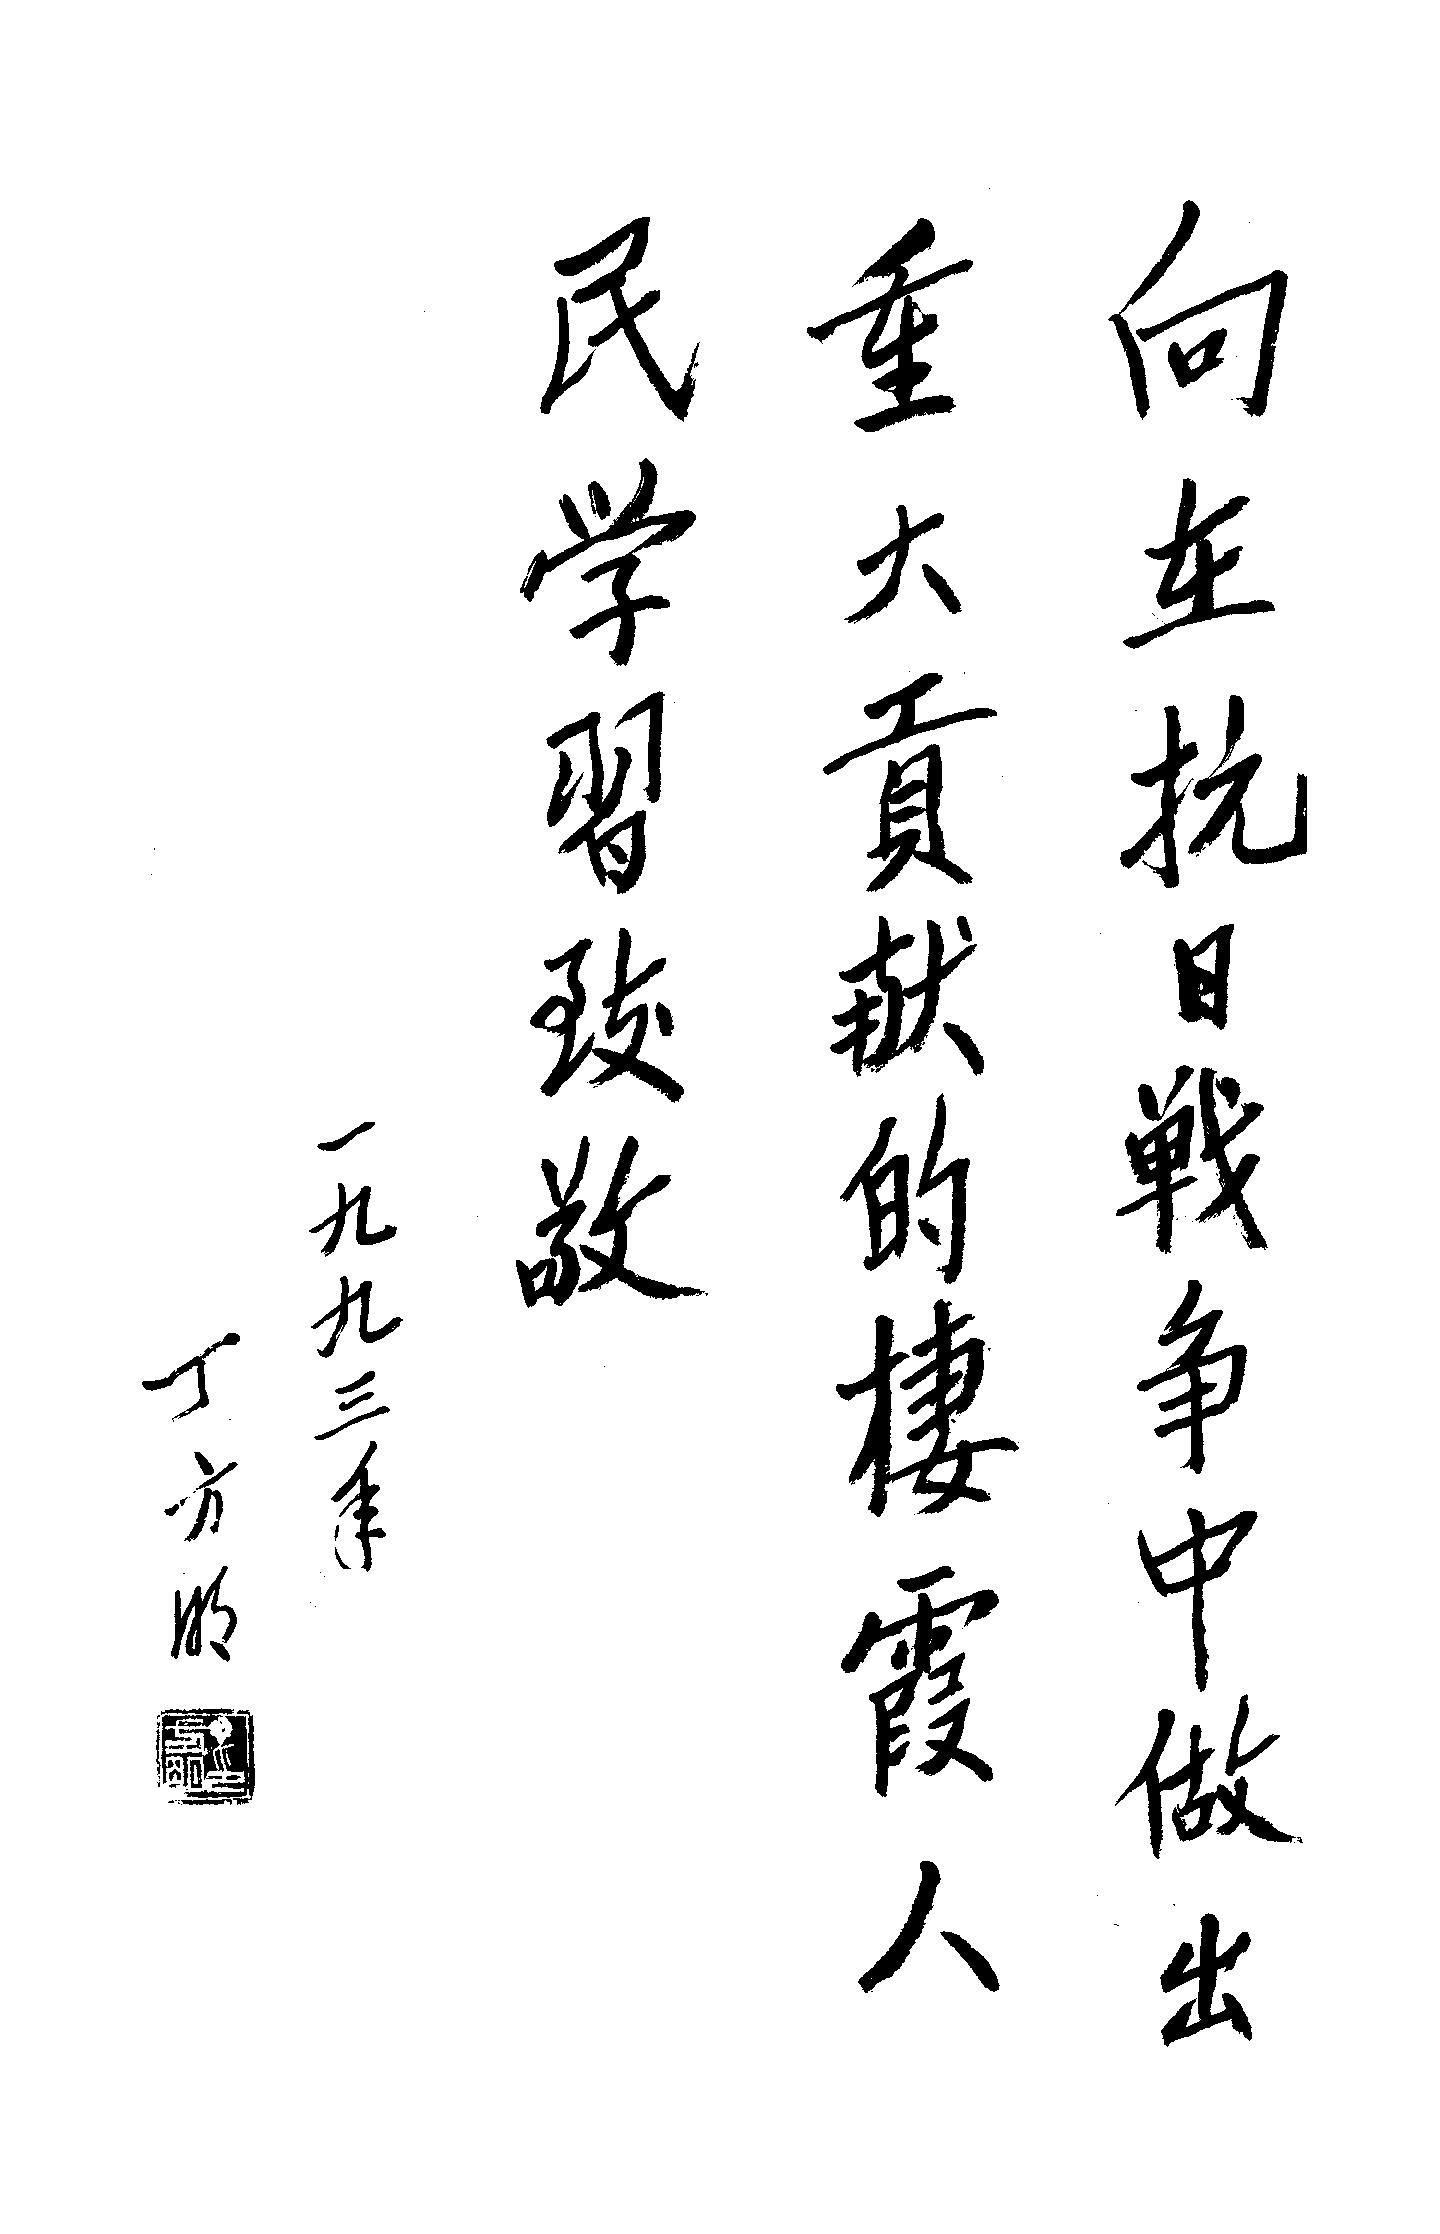 向在抗日戦争中做出
重大貢献的棲霞人
民学習致敬
一九九三年
丁方明